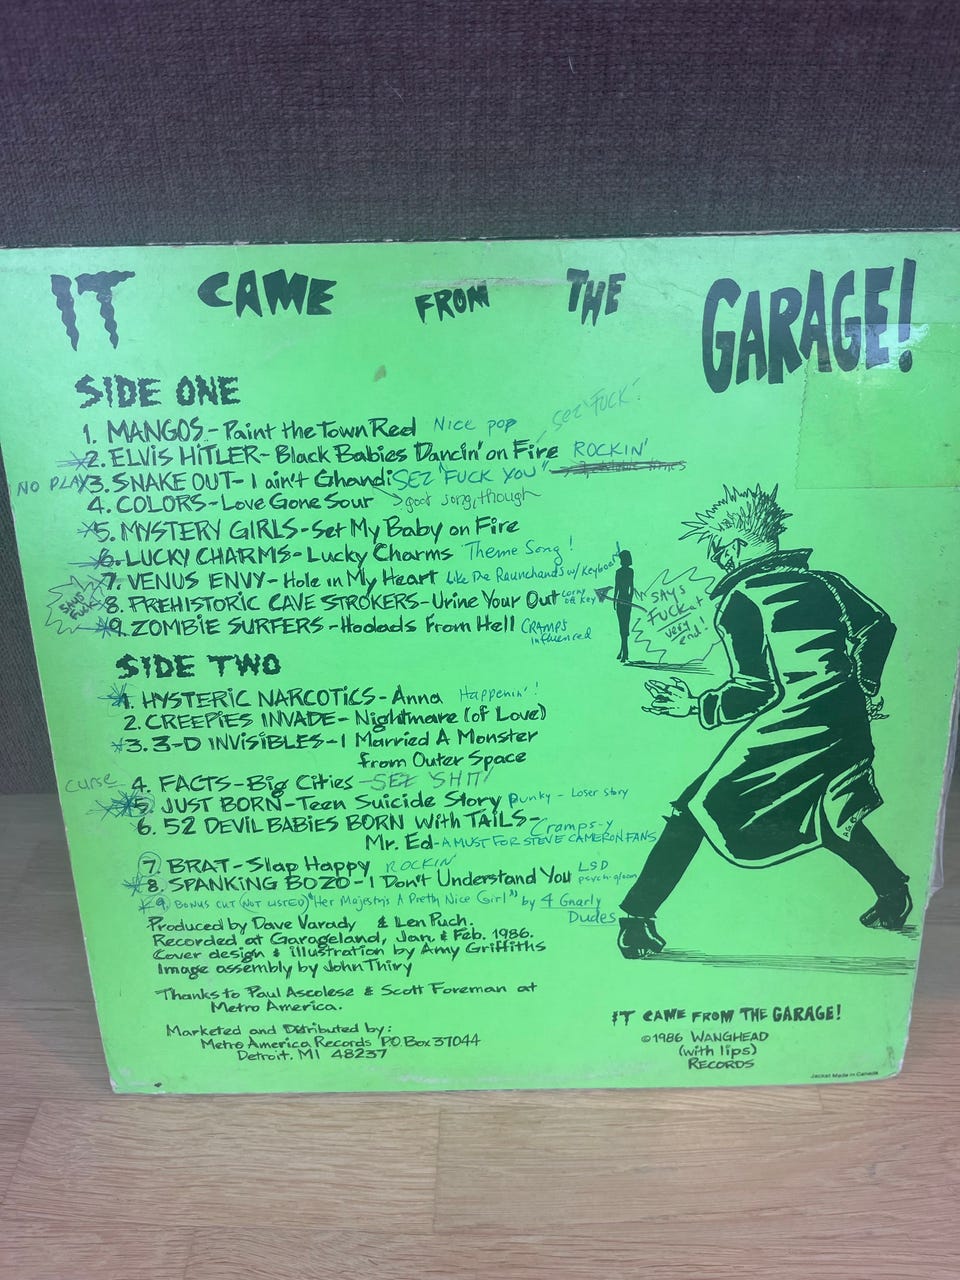 IT CAME FROM THE GARAGE!
SIDE ONE
SEZ 'FUCK'
1. MANGOS - Paint the Town Red Nice pop
2. ELVIS HITLER - Black Babies Dancin' on Fire ROCKIN'
NO PLAY 3. SNAKE OUT - I ain't Ghandi SEZ "FUCK YOU"
4. COLORS - Love Gone Sour good song, though
5. MYSTERY GIRLS - Set My Baby on Fire
6. LUCKY CHARMS - Lucky Charms Theme Song!
7. VENUS ENVY - Hole in My Heart Like Da Raunchands w/ Keyboard
SAYS FUCK
8. PREHISTORIC CAVE STROKERS - Urine Your Out
off key
SAYS
FUCK at
very
end!
9. ZOMBIE SURFERS - Hodads From Hell CRAMPS
influenced
SIDE TWO
1. HYSTERIC NARCOTICS - Anna Happenin'!
2. CREEPIES INVADE - Nightmare (of Love)
3. 3-D INVISIBLES - I Married A Monster
from Outer Space
curse 4. FACTS - Big Cities - SEZ 'SHIT'
5. JUST BORN - Teen Suicide Story punky - Loser story
6. 52 DEVIL BABIES BORN With TAILS - Cramps-y
Mr. Ed - A MUST FOR STEVE CAMERON FANS
7. BRAT - Slap Happy ROCKIN'
8. SPANKING BOZO - I Don't Understand You LSD
9. BONUS CUT (NOT LISTED) "Her Majesty's A Pretty Nice Girl" by 4 Gnarly
Dudes
Produced by Dave Varady & Len Puch.
Recorded at Garageland, Jan. & Feb. 1986.
Cover design & illustration by Amy Griffiths
Image assembly by John Thiry
Thanks to Paul Ascolese & Scott Foreman at
Metro America.
Marketed and Distributed by:
Metro America Records P.O. Box 37044
Detroit, MI 48237
IT CAME FROM THE GARAGE!
©1986 WANGHEAD
(with lips)
RECORDS
Jacket Made in Canada